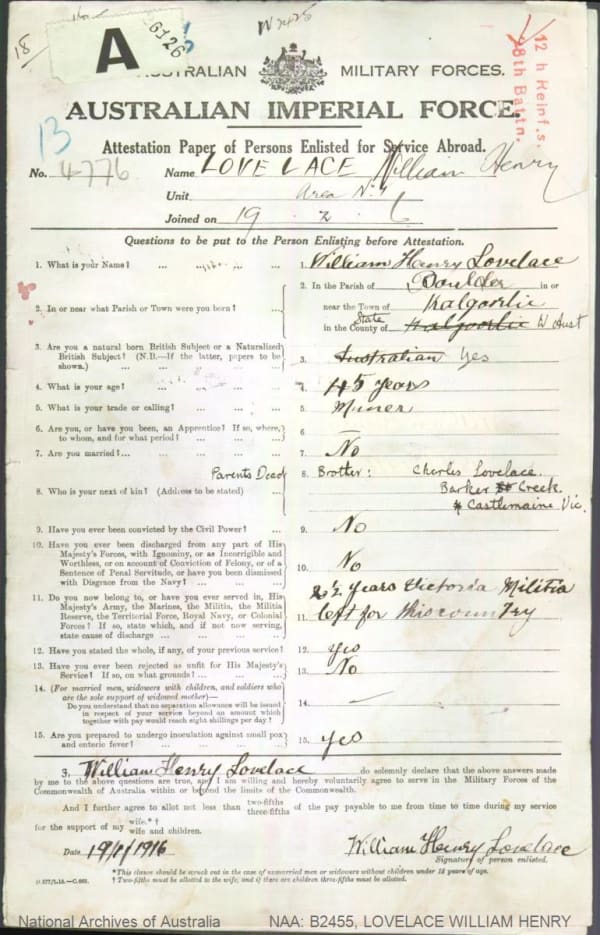 18/
W 2425
A
6126
12 h Reinf.s.
28th Battn.
AUSTRALIAN MILITARY FORCES.
AUSTRALIAN IMPERIAL FORCE.
13
Attestation Paper of Persons Enlisted for Service Abroad.
No. 4776 Name LOVELACE William Henry
Unit Area No 4
Joined on 19 2 6
Questions to be put to the Person Enlisting before Attestation.
1. What is your Name? ... ... ... 1. William Henry Lovelace
2. In or near what Parish or Town were you born? ... 2. In the Parish of Boulder in or
near the Town of Kalgoorlie
State
in the County of Kalgoorlie W Aust
3. Are you a natural born British Subject or a Naturalized
British Subject? (N.B.—If the latter, papers to be
shown.) ... ... ... ... 3. Australian Yes
4. What is your age? ... ... ... ... 4. 45 years
5. What is your trade or calling? ... ... ... 5. Miner
6. Are you, or have you been, an Apprentice? If so, where,
to whom, and for what period? ... ... ... 6.
7. Are you married? ... ... ... ... 7. No
Parents Dead
8. Who is your next of kin? (Address to be stated) ... 8. Brother: Charles Lovelace.
Barker Creek
Castlemaine Vic.
9. Have you ever been convicted by the Civil Power? ... 9. No
10. Have you ever been discharged from any part of His
Majesty's Forces, with Ignominy, or as Incorrigible and
Worthless, or on account of Conviction of Felony, or of a
Sentence of Penal Servitude, or have you been dismissed
with Disgrace from the Navy? ... ... ... 10. No
11. Do you now belong to, or have you ever served in, His
Majesty's Army, the Marines, the Militia, the Militia
Reserve, the Territorial Force, Royal Navy, or Colonial
Forces? If so, state which, and if not now serving,
state cause of discharge ... ... ... 11. 2½ years Victoria Militia
left for this country
12. Have you stated the whole, if any, of your previous service? 12. yes
13. Have you ever been rejected as unfit for His Majesty's
Service? If so, on what grounds? ... ... 13. No
14. (For married men, widowers with children, and soldiers who
are the sole support of widowed mother)—
Do you understand that no separation allowance will be issued
in respect of your service beyond an amount which
together with pay would reach eight shillings per day? 14. —
15. Are you prepared to undergo inoculation against small pox
and enteric fever? ... ... ... ... 15. yes
3. William Henry Lovelace do solemnly declare that the above answers made
by me to the above questions are true, and I am willing and hereby voluntarily agree to serve in the Military Forces of the
Commonwealth of Australia within or beyond the limits of the Commonwealth.
And I further agree to allot not less than two-fifths three-fifths of the pay payable to me from time to time during my service
for the support of my wife.*† wife and children.
Date 19/1/1916 William Henry Lovelace
Signature of person enlisted.
*This clause should be struck out in the case of unmarried men or widowers without children under 18 years of age.
† Two-fifths must be allotted to the wife, and if there are children three-fifths must be allotted.
National Archives of Australia NAA: B2455, LOVELACE WILLIAM HENRY